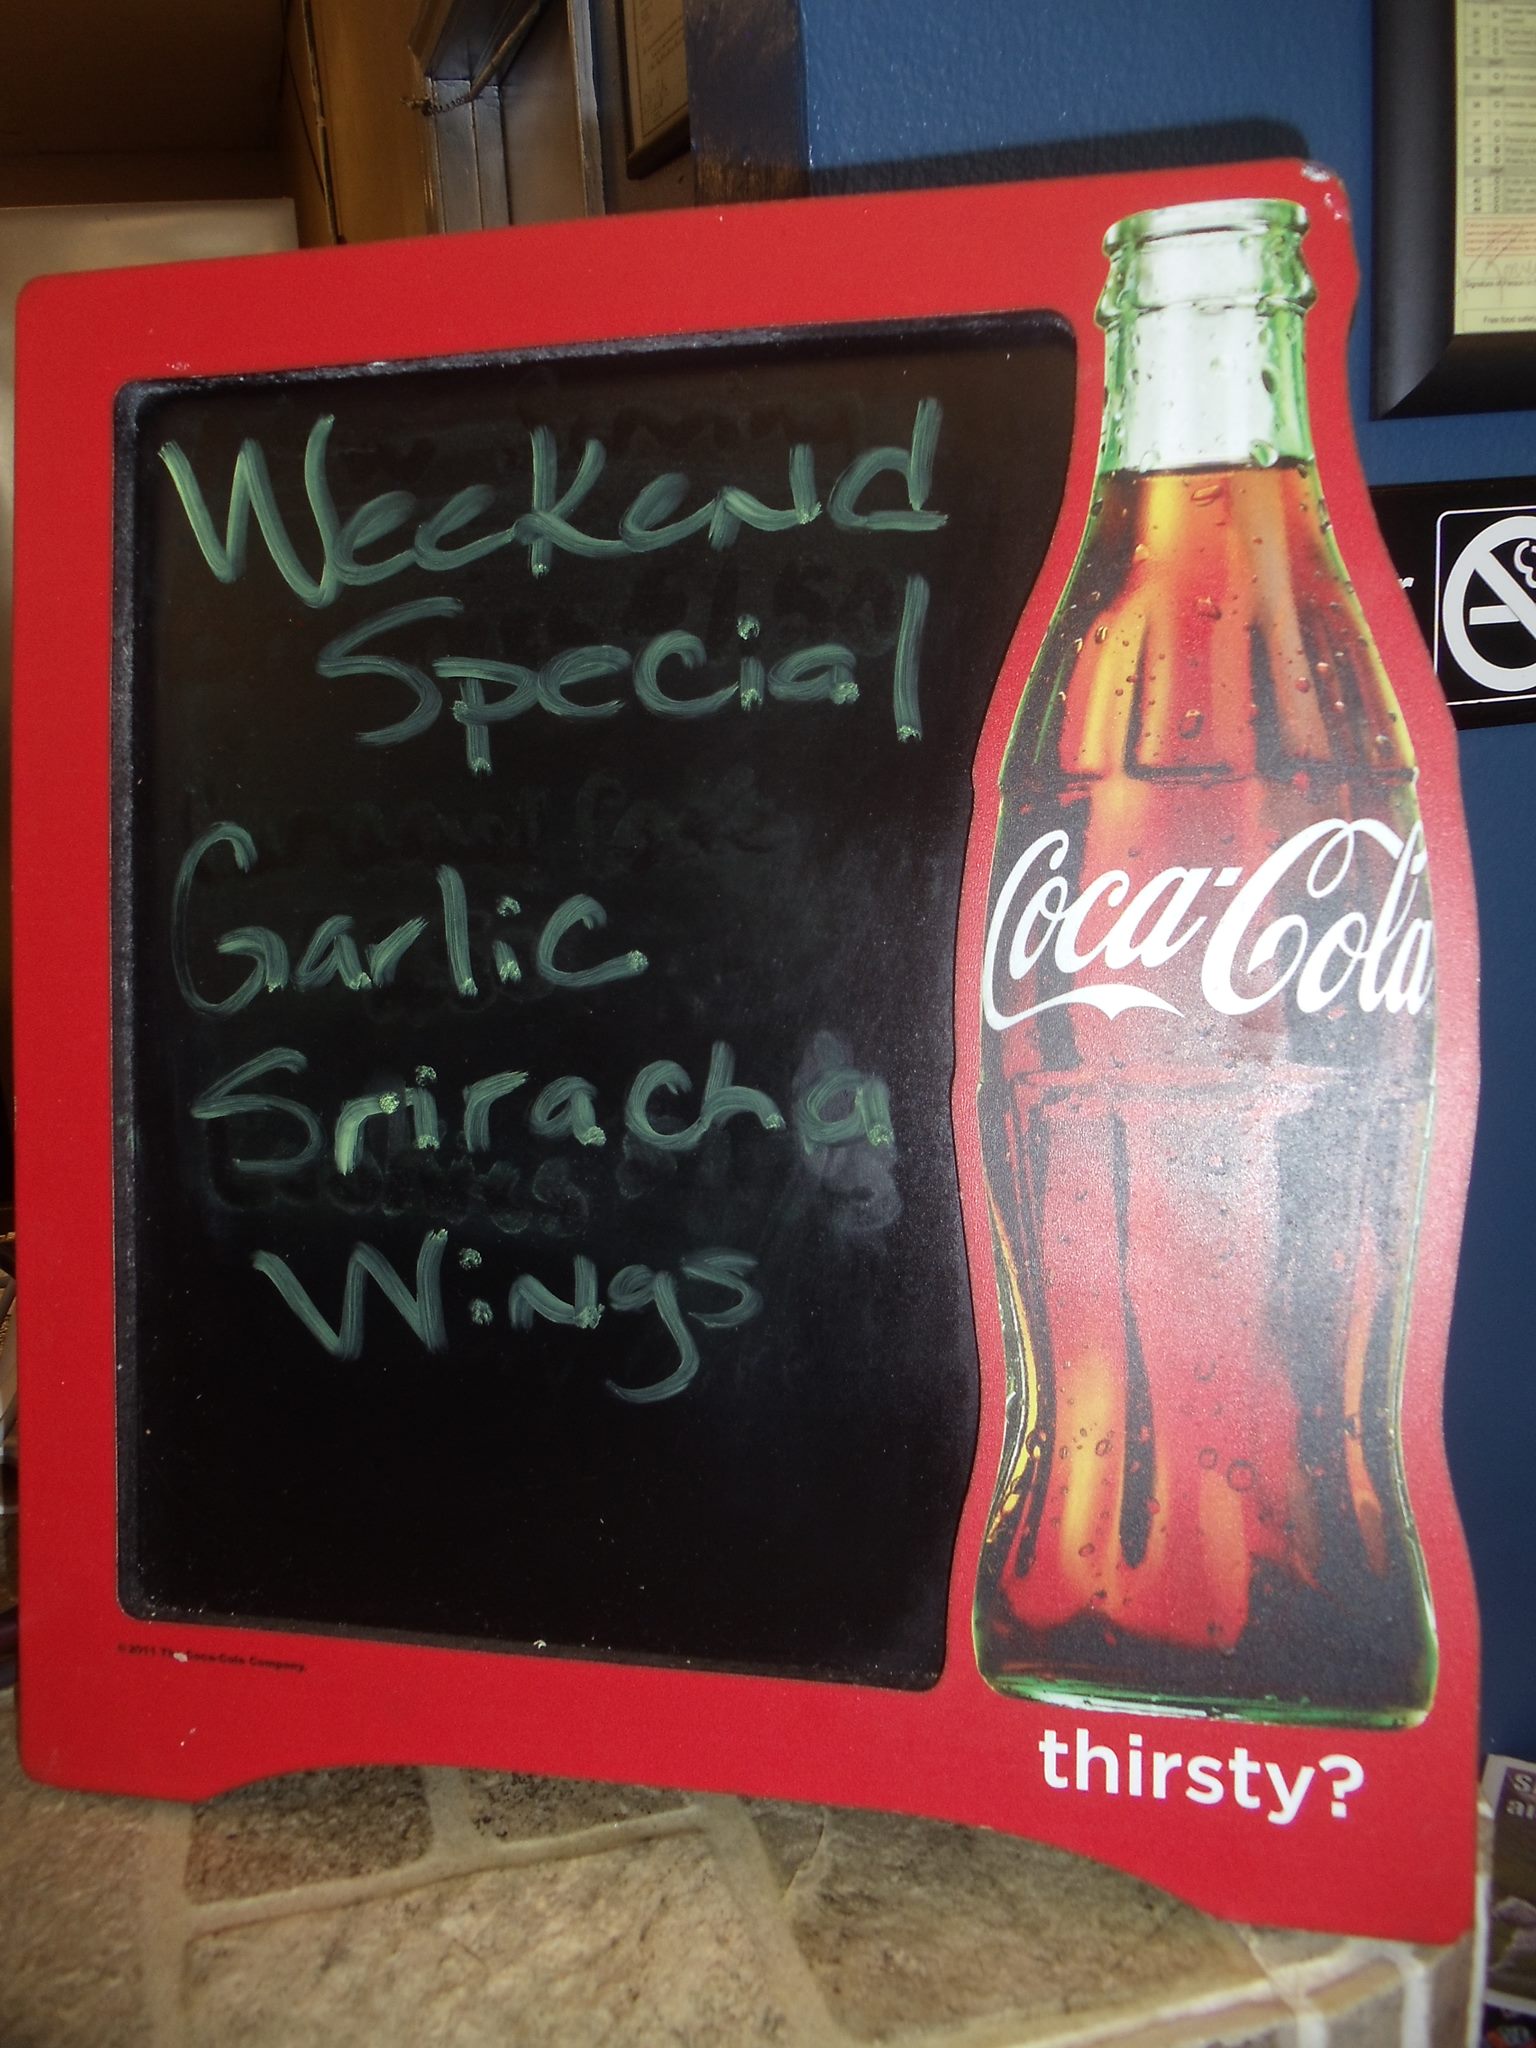 Weekend
Special
Garlic
Sriracha
Wings
Coca-Cola
thirsty?
©2011 The Coca-Cola Company.